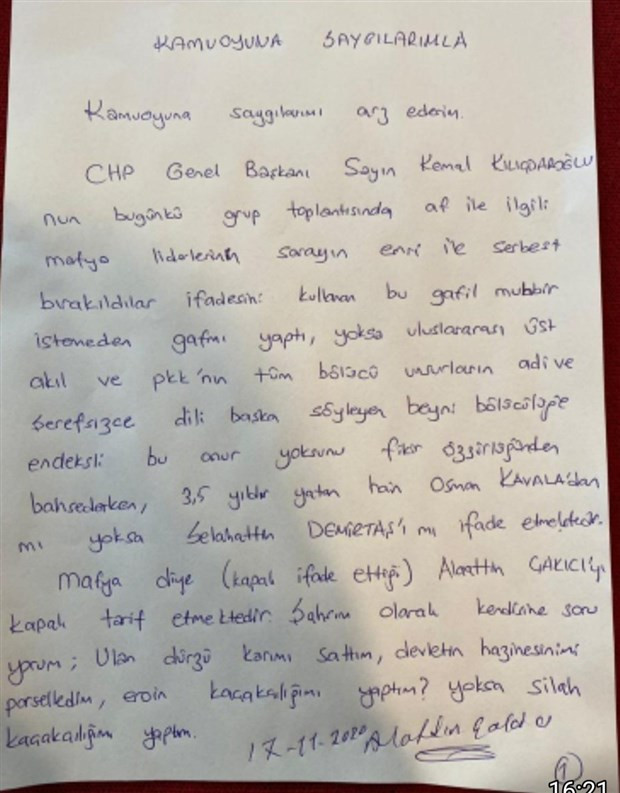 KAMUOYUNA SAYGILARIMLA
Kamuoyuna saygılarımı arz ederim.
CHP Genel Başkanı Sayın Kemal KILIÇDAROĞLU
nun bugünkü grup toplantısında af ile ilgili
mafya liderlerinin sarayın emri ile serbest
bırakıldılar ifadesini kullanan bu gafil muhbir
istemeden gafmı yaptı, yoksa uluslararası üst
akıl ve pkk'nın tüm bölücü unsurların adi ve
şerefsizce dili başka söyleyen beyni bölücülüğe
endeksli bu onur yoksunu fikir özgürlüğünden
bahsederken, 3,5 yıldır yatan hain Osman KAVALA'dan
mı yoksa Selahattin DEMİRTAŞ'ı mı ifade etmektedir.
Mafya diye (kapalı ifade ettiği) Alaattin ÇAKICI'yı
kapalı tarif etmektedir. Şahsım olarak kendisine soru
yorum; Ulan dürzü karımı sattım, devletin hazinesinimi
porselledim, eroin kaçakçılığımı yaptım? yoksa silah
kaçakçılığımı yaptım. 17-11-2020
1
16:21